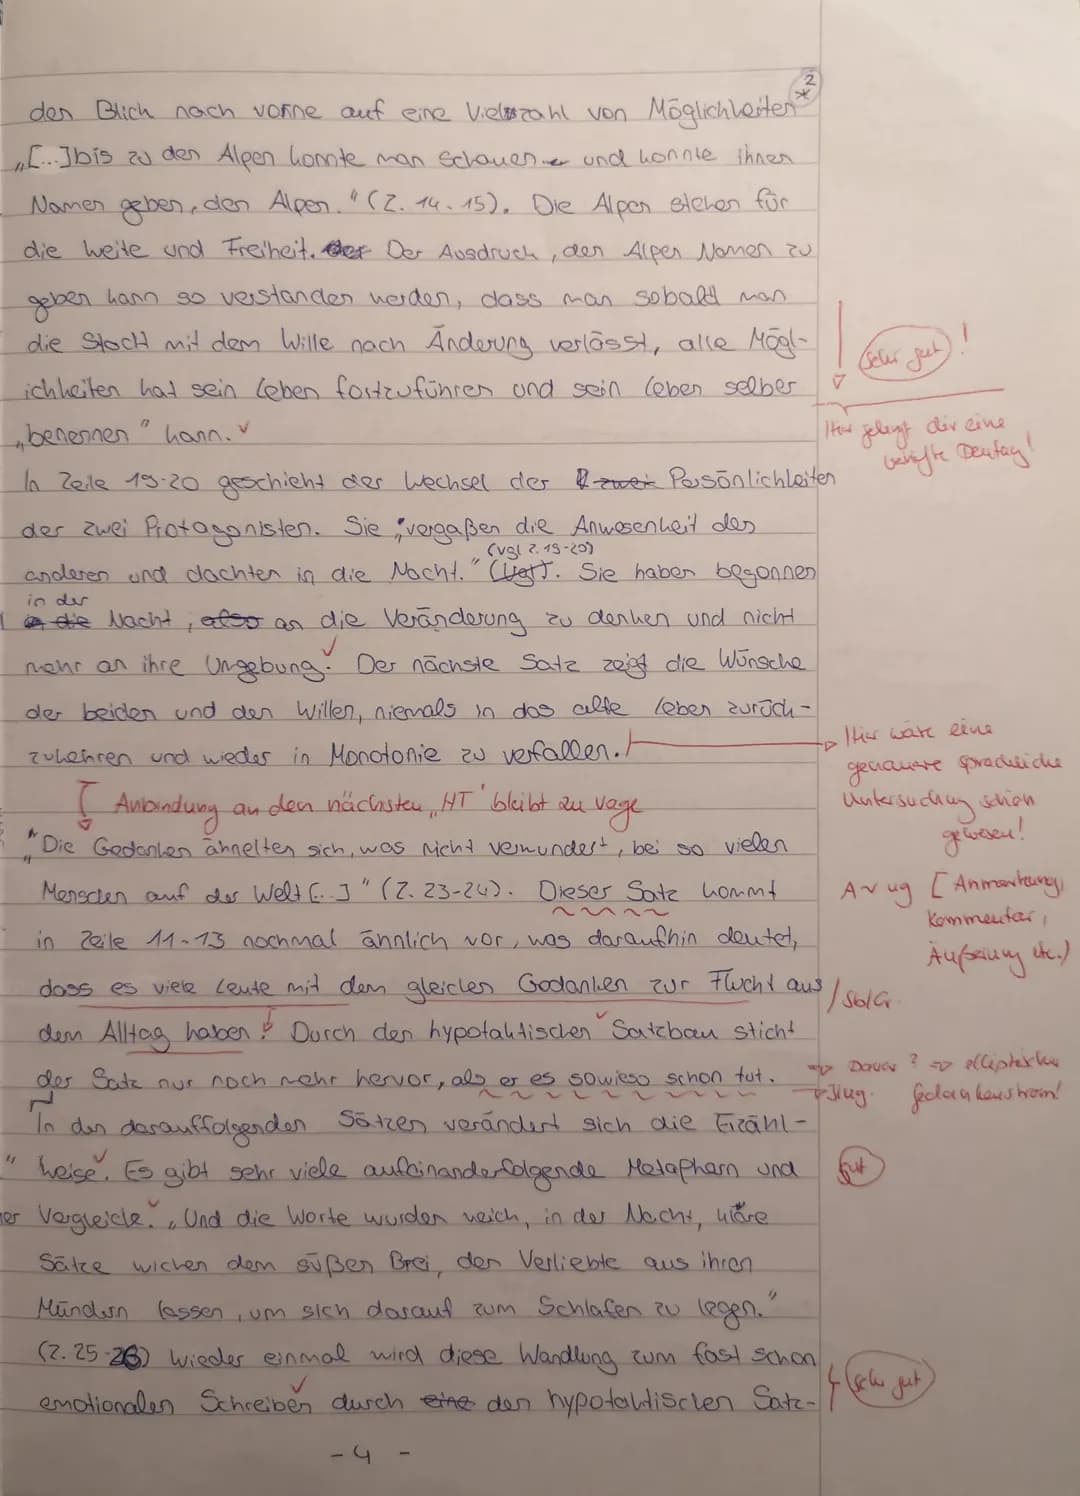 2
*
den Blick nach vorne auf eine Vielzahl von Möglichkeiten
„[...] bis zu den Alpen konnte man schauen und konnte ihnen
Namen geben, den Alpen." (Z. 14-15). Die Alpen stehen für
die Weite und Freiheit. Der Ausdruck, den Alpen Namen zu
geben kann so verstanden werden, dass man sobald man
die Stadt mit dem Wille nach Änderung verlässt, alle Mögl-
ichkeiten hat sein Leben fortzuführen und sein Leben selber
Sehr gut!
„benennen" kann.
Hier gelingt dir eine
vertiefte Deutung!
In Zeile 19-20 geschieht der Wechsel der Persönlichkeiten
der zwei Protagonisten. Sie „vergaßen die Anwesenheit des
(vgl Z. 19-20)
anderen und dachten in die Nacht." Sie haben begonnen
in der
Nacht, an die Veränderung zu denken und nicht
mehr an ihre Umgebung. Der nächste Satz zeigt die Wünsche
der beiden und den Willen, niemals in das alte Leben zurück-
zukehren und wieder in Monotonie zu verfallen.
Hier wäre eine
genauere sprachliche
Untersuchung schön
gewesen!
Anbindung an den nächsten „HT" bleibt zu vage
„Die Gedanken ähnelten sich, was nicht verwundert, bei so vielen
Menschen auf der Welt [...]" (Z. 23-24). Dieser Satz kommt
A ug [Anmerkung,
Kommentar,
Äußerung etc.)
in Zeile 11-13 nochmal ähnlich vor, was daraufhin deutet,
dass es viele Leute mit dem gleichen Gedanken zur Flucht aus
Sb/Gr.
dem Alltag haben. Durch den hypotaktischen Satzbau sticht
der Satz nur noch mehr hervor, als er es sowieso schon tut.
? ⇒ elliptischer
Gedankenstrom!
In den darauffolgenden Sätzen verändert sich die Erzähl-
weise. Es gibt sehr viele aufeinanderfolgende Metaphern und
gut
Vergleiche. „Und die Worte wurden weich, in der Nacht, klare
Sätze wichen dem süßen Brei, den Verliebte aus ihren
Mündern lassen, um sich darauf zum Schlafen zu legen."
(Z. 25-26) Wieder einmal wird diese Wandlung zum fast schon
sehr gut
emotionalen Schreiben durch den hypotaktischen Satz-
- 4 -